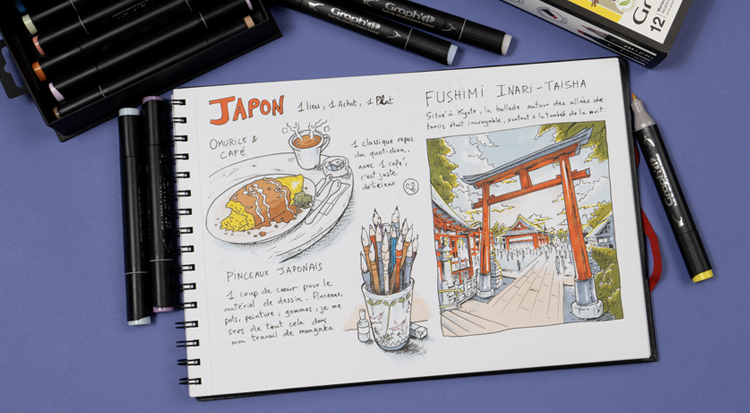 JAPON
1 lieu, 1 Achat, 1 Plat
OMURICE &
CAFÉ
1 classique repas
du quotidien,
avec 1 café,
c'est juste
délicieux
PINCEAUX JAPONAIS
1 coup de cœur pour le
matériel de dessin. Pinceaux,
pots, peinture, gommes, je me
sers de tout cela dans
mon travail de mangaka
FUSHIMI INARI-TAISHA
Situé à Kyoto, la ballade autour des allées de
toriis était incroyable, surtout à la tombée de la nuit.
Graph'it
Graph'it
12